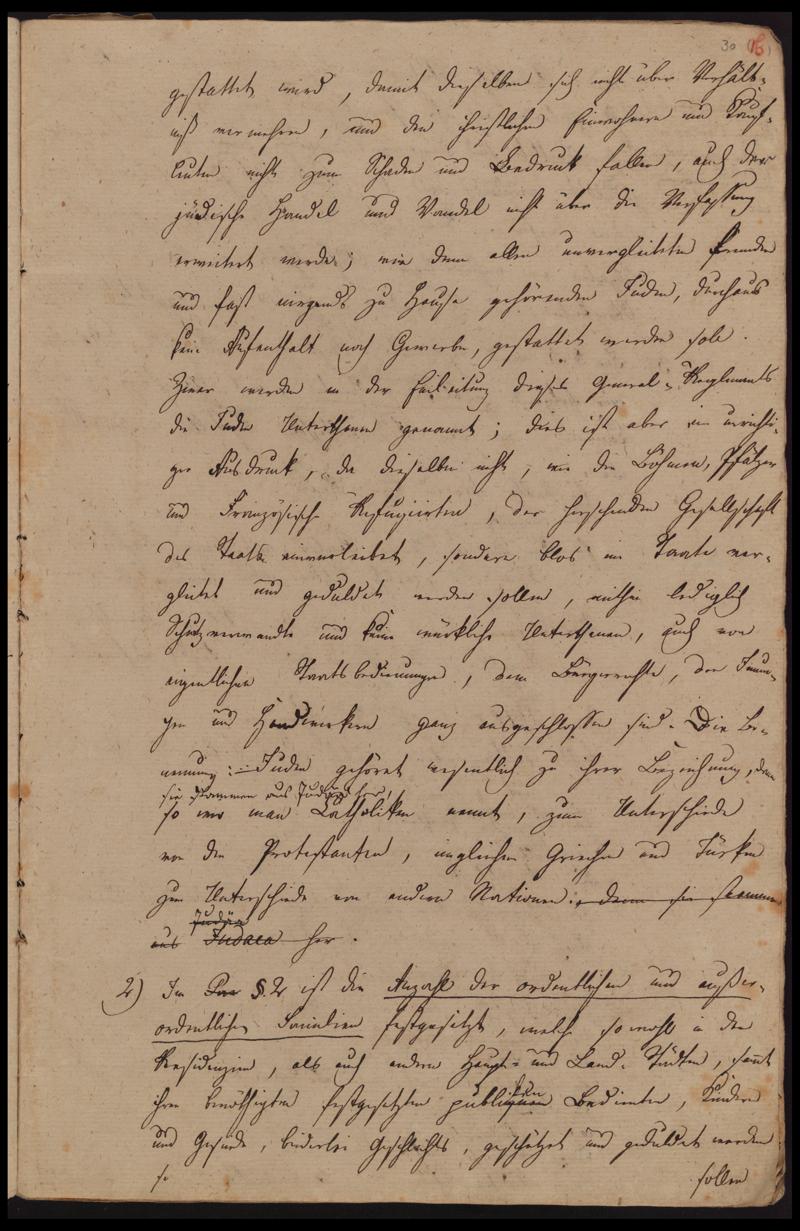 30 16)
gestattet wird, damit dieselben sich nicht über Verhält-
niß vermehren, und die christlichen Einwohner und Kauf-
leuten nicht zum Schaden und Bedruck fallen, auch der
jüdische Handel und Wandel nicht über die Verfassung
erweitert werde; wie denn allen unvergleiteten fremden
und fast nirgends zu Hause gehörenden Juden, durchaus
kein Aufenthalt noch Gewerbe, gestattet werden solle.
Zwar werden in der Einleitung dieses General-Reglements
die Juden Unterthanen genannt; dies ist aber ein unrichti-
ger Ausdruck, da dieselben nicht, wie die Böhmen, Pfälzer
und Französische Refugiirten, der herrschenden Gesellschaft
des Staats einverleibet, sondern blos im Staate ver-
gleitet und geduldet werden sollen, mithin lediglich
Schutzverwandte und keine würkliche Unterthanen, auch von
eigentlichen Staatsbedienungen, dem Bürgerrechte, den Innun-
gen und Handwerkern ganz ausgeschlossen sind. Die Be-
nennung: Juden gehöret wesentlich zu ihrer Bezeichnung, denn
sie stammen aus Judäa her,
so wie man Catholiken nennt, zum Unterschiede
von den Protestanten, imgleichen Griechen und Türken
zum Unterschiede von andern Nationen. denn sie stammen
Judäa
aus Judaea her.
2) Im Par §. 2 ist die Anzahl der ordentlichen und außer-
ordentlichen Familien festgesetzt, welche sowohl in den
Residenzien, als auch andern Haupt- und Land-Städten, samt
ihren benöthigten festgesetzten publiquen Bedienten, Kindern
und Gesinde, beiderlei Geschlechts, geschützet und geduldet werden
sollen